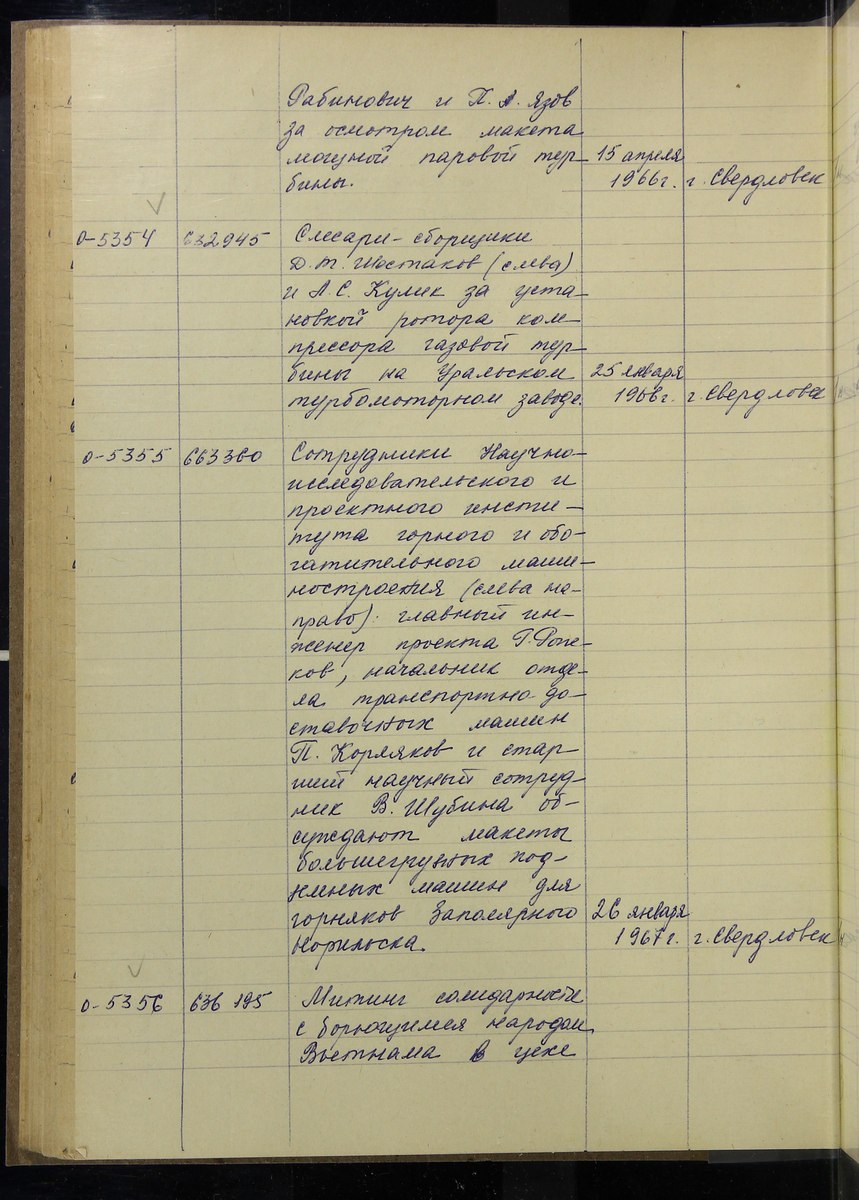 Рабинович и П. А. Язов
за осмотром макета
мощной паровой тур- 15 апреля
бины. 1966г. г. Свердловск
0-5354 632945 Слесари-сборщики
Д. Т. Шостаков (слева)
и А. С. Кулик за уста-
новкой ротора ком-
прессора газовой тур-
бины на Уральском 25 января
турбомоторном заводе. 1966г. г. Свердловск
0-5355 663360 Сотрудники Научно-
исследовательского и
проектного инсти-
тута горного и обо-
гатительного маши-
ностроения (слева на-
право): главный ин-
женер проекта Г.
ков, начальник отде-
ла транспортно-до-
ставочных машин
П. Корляков и стар-
ший научный сотруд-
ник В. Шубина об-
суждают макеты
большегрузных под-
земных машин для
горняков Заполярного 26 января
Норильска. 1967г. г. Свердловск
0-5356 636 195 Митинг солидарности
с борющимся народом
Вьетнама в цехе